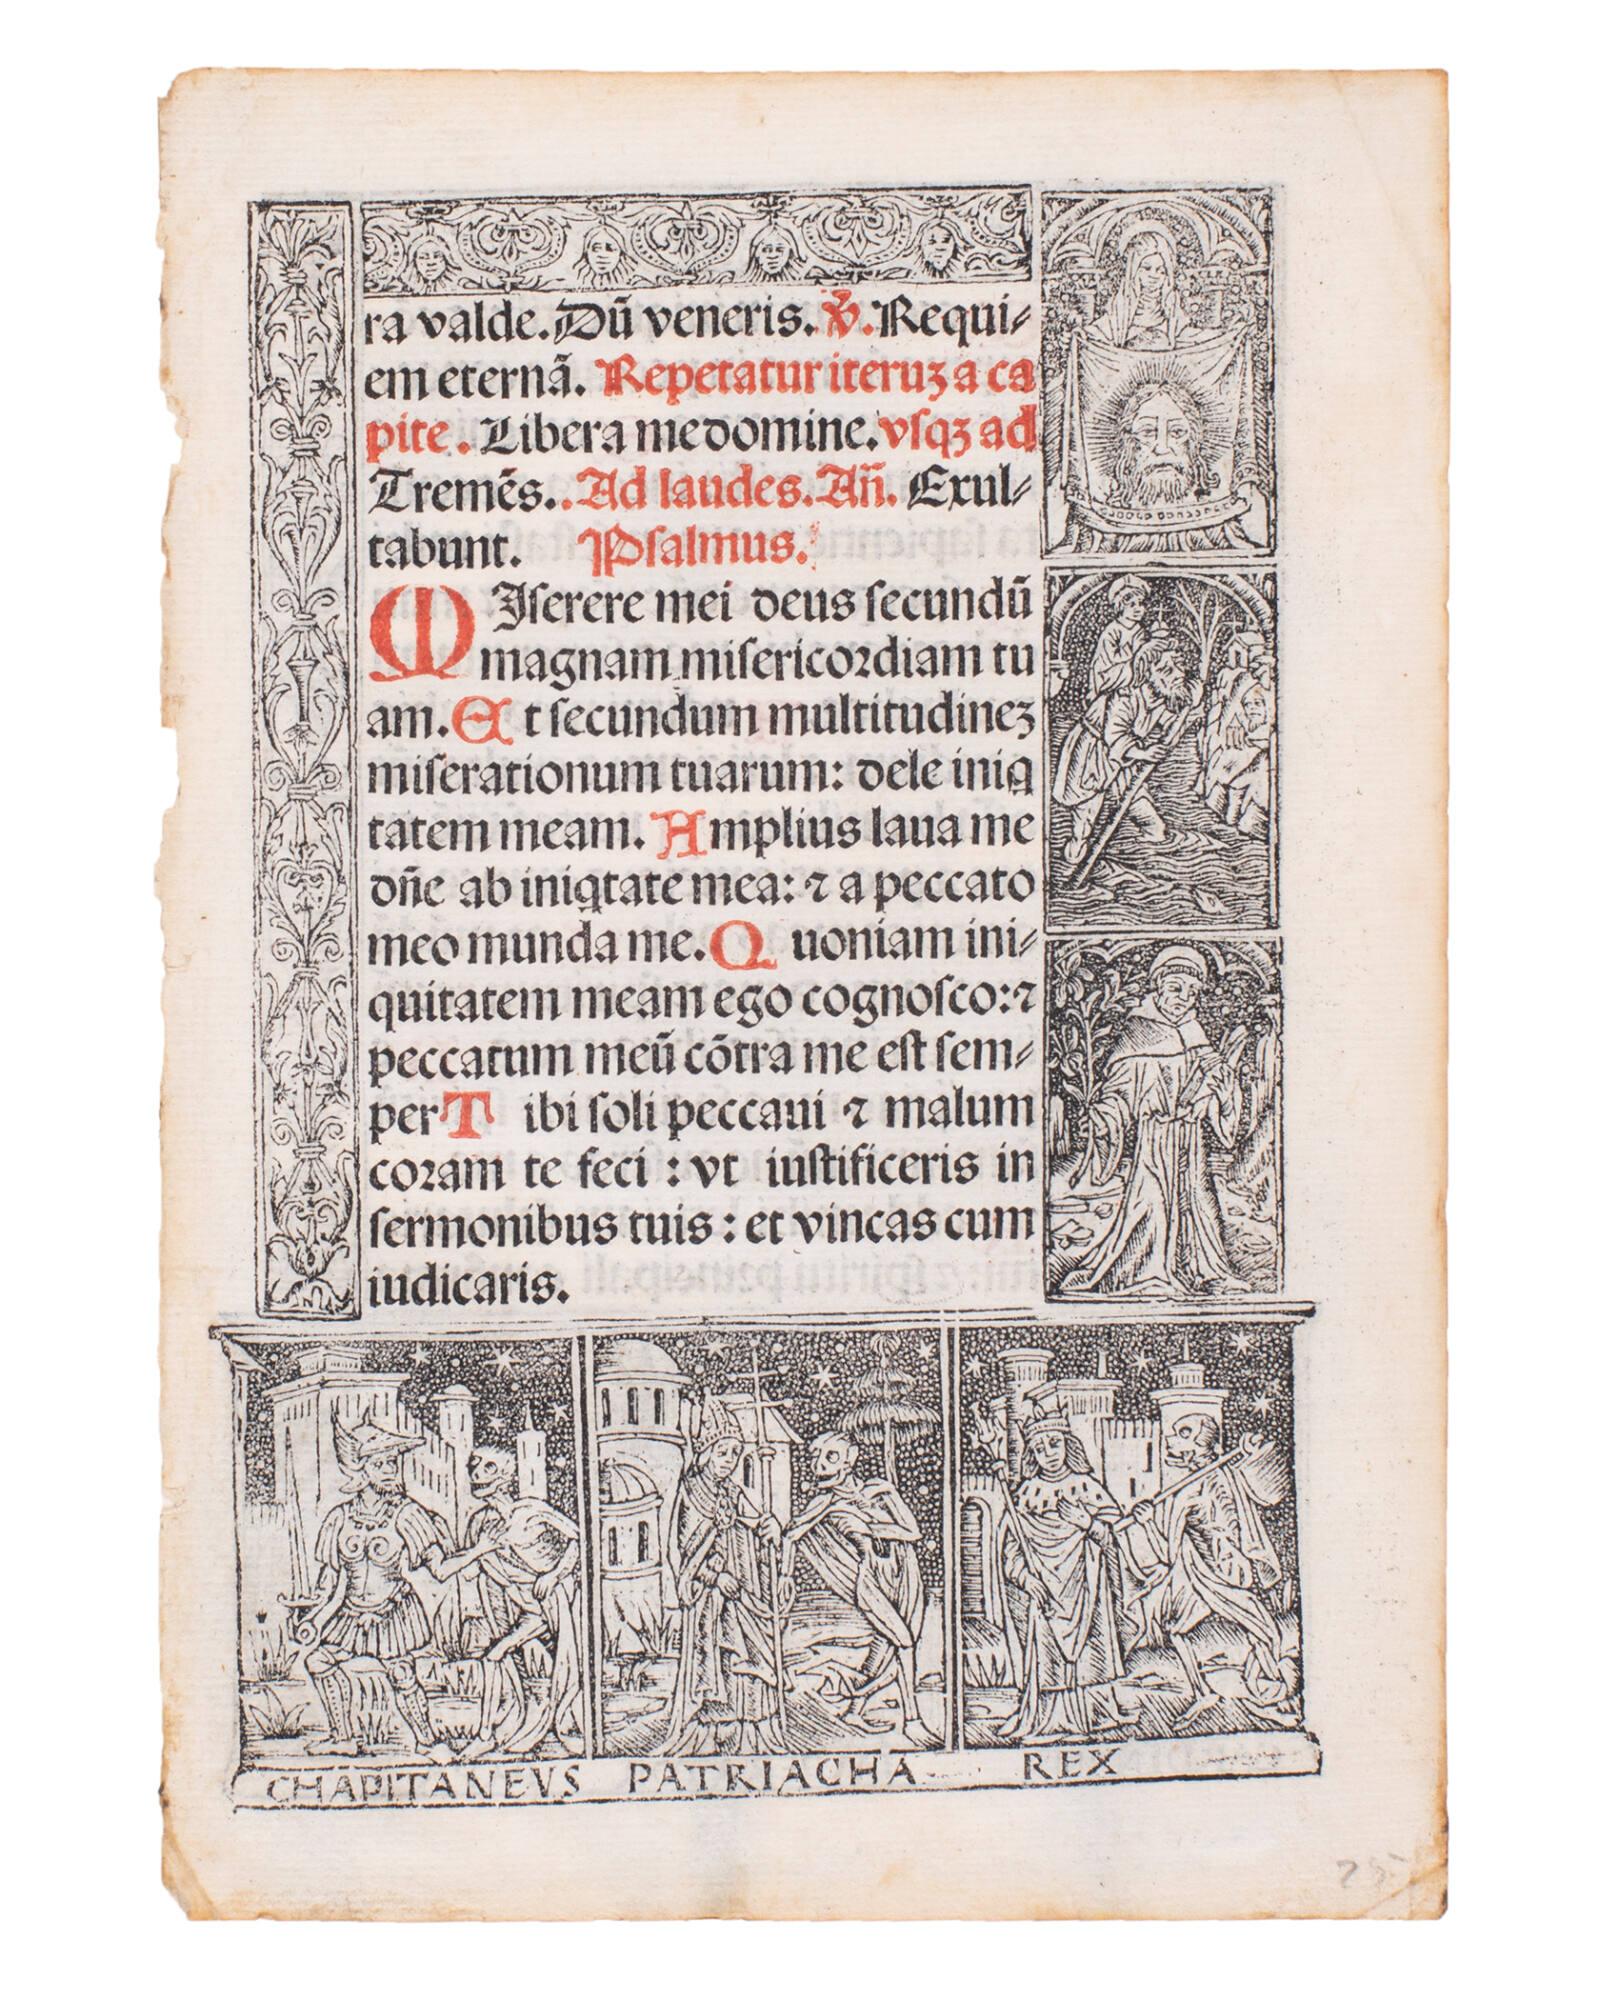 ra valde. Dũ veneris. ℣. Requi⸗
em eternã. Repetatur iteruʒ a ca
pite. Libera me domine. vſqʒ ad
Tremẽs.. Ad laudes. Añ. Exul⸗
tabunt. Pſalmus.
MIſerere mei deus ſecundũ
magnam miſericoꝛdiam tu
am. Et ſecundum multitudineʒ
miſerationum tuarum: dele iniq
tatem meam. Amplius laua me
dñe ab iniqtate mea: ⁊ a peccato
meo munda me. Quoniam ini⸗
quitatem meam ego cognoſco: ⁊
peccatum meũ cõtra me eſt ſem⸗
per Tibi ſoli peccaui ⁊ malum
coꝛam te feci : vt iuſtificeris in
ſermonibus tuis : et vincas cum
iudicaris.
CHAPITANEVS PATRIACHA REX